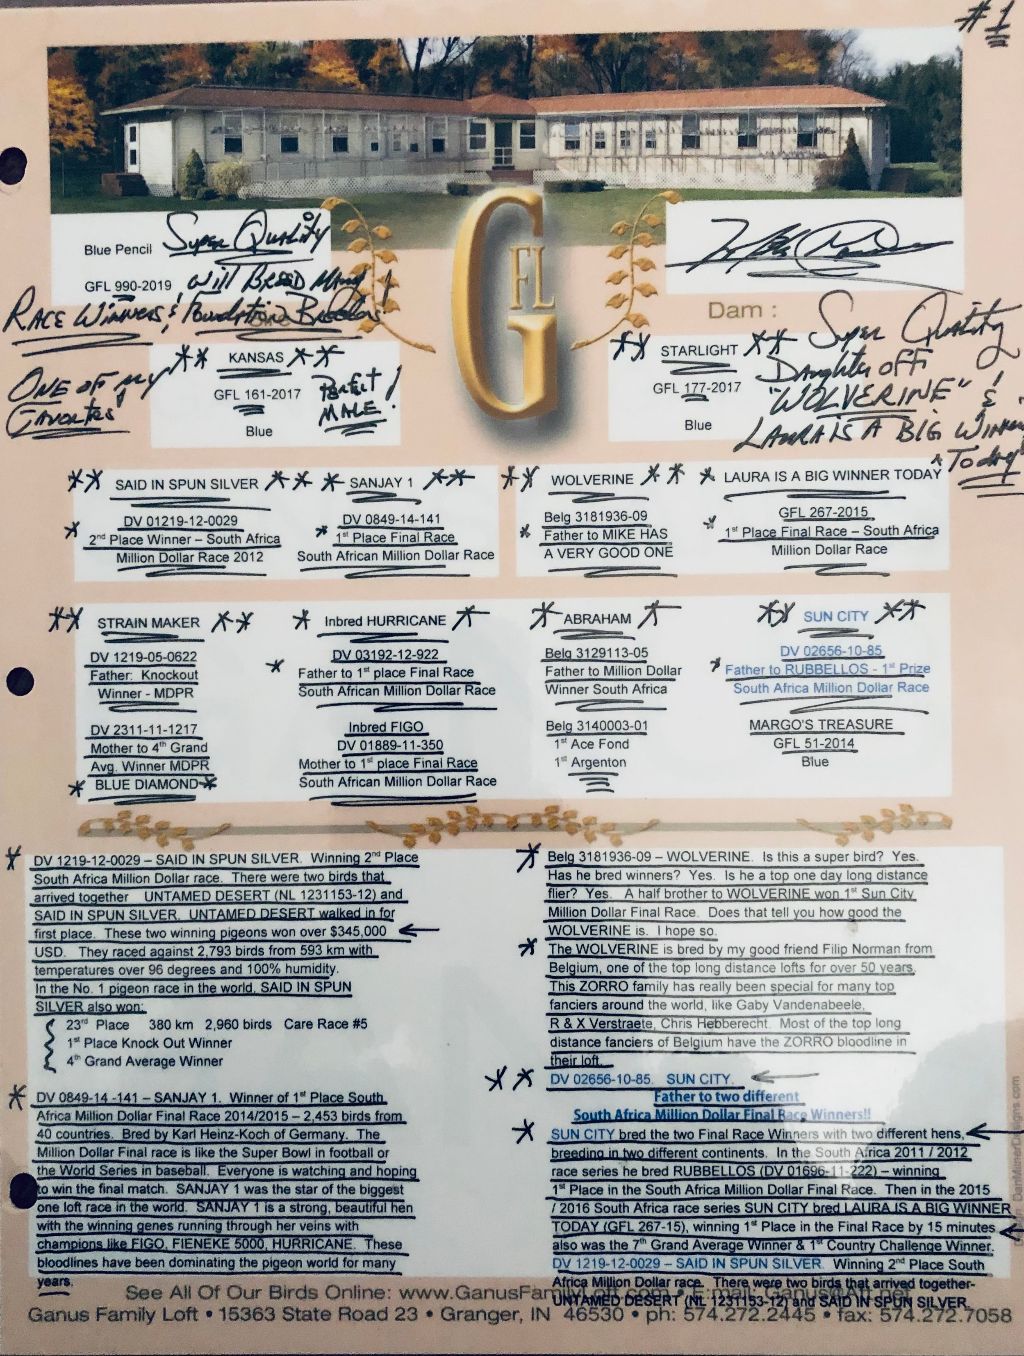 #1
Blue Pencil Super Quality
GFL 990-2019 will Breed Many
Race Winners & Foundation Breeders!
One of my Favorites!
G
FL
Dam :
Super Quality
Daughter off
"WOLVERINE" &
LAURA IS A BIG Winner
Today!
** KANSAS **
GFL 161-2017
Perfect MALE!
Blue
** STARLIGHT **
GFL 177-2017
Blue
** SAID IN SPUN SILVER **
DV 01219-12-0029
* 2nd Place Winner – South Africa
Million Dollar Race 2012
* SANJAY 1 **
DV 0849-14-141
* 1st Place Final Race
South African Million Dollar Race
** WOLVERINE **
Belg 3181936-09
* Father to MIKE HAS
A VERY GOOD ONE
* LAURA IS A BIG WINNER TODAY
GFL 267-2015
* 1st Place Final Race – South Africa
Million Dollar Race
** STRAIN MAKER **
DV 1219-05-0622
Father: Knockout
Winner - MDPR
DV 2311-11-1217
Mother to 4th Grand
Avg. Winner MDPR
* BLUE DIAMOND *
* Inbred HURRICANE *
DV 03192-12-922
* Father to 1st place Final Race
South African Million Dollar Race
Inbred FIGO
DV 01889-11-350
Mother to 1st place Final Race
South African Million Dollar Race
* ABRAHAM *
Belg 3129113-05
Father to Million Dollar
Winner South Africa
Belg 3140003-01
1st Ace Fond
1st Argenton
** SUN CITY **
DV 02656-10-85
* Father to RUBBELLOS - 1st Prize
South Africa Million Dollar Race
MARGO'S TREASURE
GFL 51-2014
Blue
* DV 1219-12-0029 – SAID IN SPUN SILVER. Winning 2nd Place
South Africa Million Dollar race. There were two birds that
arrived together UNTAMED DESERT (NL 1231153-12) and
SAID IN SPUN SILVER. UNTAMED DESERT walked in for
first place. These two winning pigeons won over $345,000
USD. They raced against 2,793 birds from 593 km with
temperatures over 96 degrees and 100% humidity.
In the No. 1 pigeon race in the world, SAID IN SPUN
SILVER also won:
23rd Place 380 km 2,960 birds Care Race #5
1st Place Knock Out Winner
4th Grand Average Winner
* DV 0849-14 -141 – SANJAY 1. Winner of 1st Place South
Africa Million Dollar Final Race 2014/2015 – 2,453 birds from
40 countries. Bred by Karl Heinz-Koch of Germany. The
Million Dollar Final race is like the Super Bowl in football or
the World Series in baseball. Everyone is watching and hoping
to win the final match. SANJAY 1 was the star of the biggest
one loft race in the world. SANJAY 1 is a strong, beautiful hen
with the winning genes running through her veins with
champions like FIGO, FIENEKE 5000, HURRICANE. These
bloodlines have been dominating the pigeon world for many
years.
* Belg 3181936-09 – WOLVERINE. Is this a super bird? Yes.
Has he bred winners? Yes. Is he a top one day long distance
flier? Yes. A half brother to WOLVERINE won 1st Sun City
Million Dollar Final Race. Does that tell you how good the
WOLVERINE is. I hope so.
* The WOLVERINE is bred by my good friend Filip Norman from
Belgium, one of the top long distance lofts for over 50 years.
This ZORRO family has really been special for many top
fanciers around the world, like Gaby Vandenabeele,
R & X Verstraete, Chris Hebberecht. Most of the top long
distance fanciers of Belgium have the ZORRO bloodline in
their loft.
** DV 02656-10-85. SUN CITY.
Father to two different
South Africa Million Dollar Final Race Winners!!
* SUN CITY bred the two Final Race Winners with two different hens,
breeding in two different continents. In the South Africa 2011 / 2012
race series he bred RUBBELLOS (DV 01696-11-222) – winning
1st Place in the South Africa Million Dollar Final Race. Then in the 2015
/ 2016 South Africa race series SUN CITY bred LAURA IS A BIG WINNER
TODAY (GFL 267-15), winning 1st Place in the Final Race by 15 minutes
also was the 7th Grand Average Winner & 1st Country Challenge Winner.
DV 1219-12-0029 – SAID IN SPUN SILVER. Winning 2nd Place South
Africa Million Dollar race. There were two birds that arrived together-
UNTAMED DESERT (NL 1231153-12) and SAID IN SPUN SILVER.
See All Of Our Birds Online: www.GanusFamilyLoft.com • E:mail: Ganus@Att.net
Ganus Family Loft • 15363 State Road 23 • Granger, IN 46530 • ph: 574.272.2445 • fax: 574.272.7058
DanMilnerDesigns.com